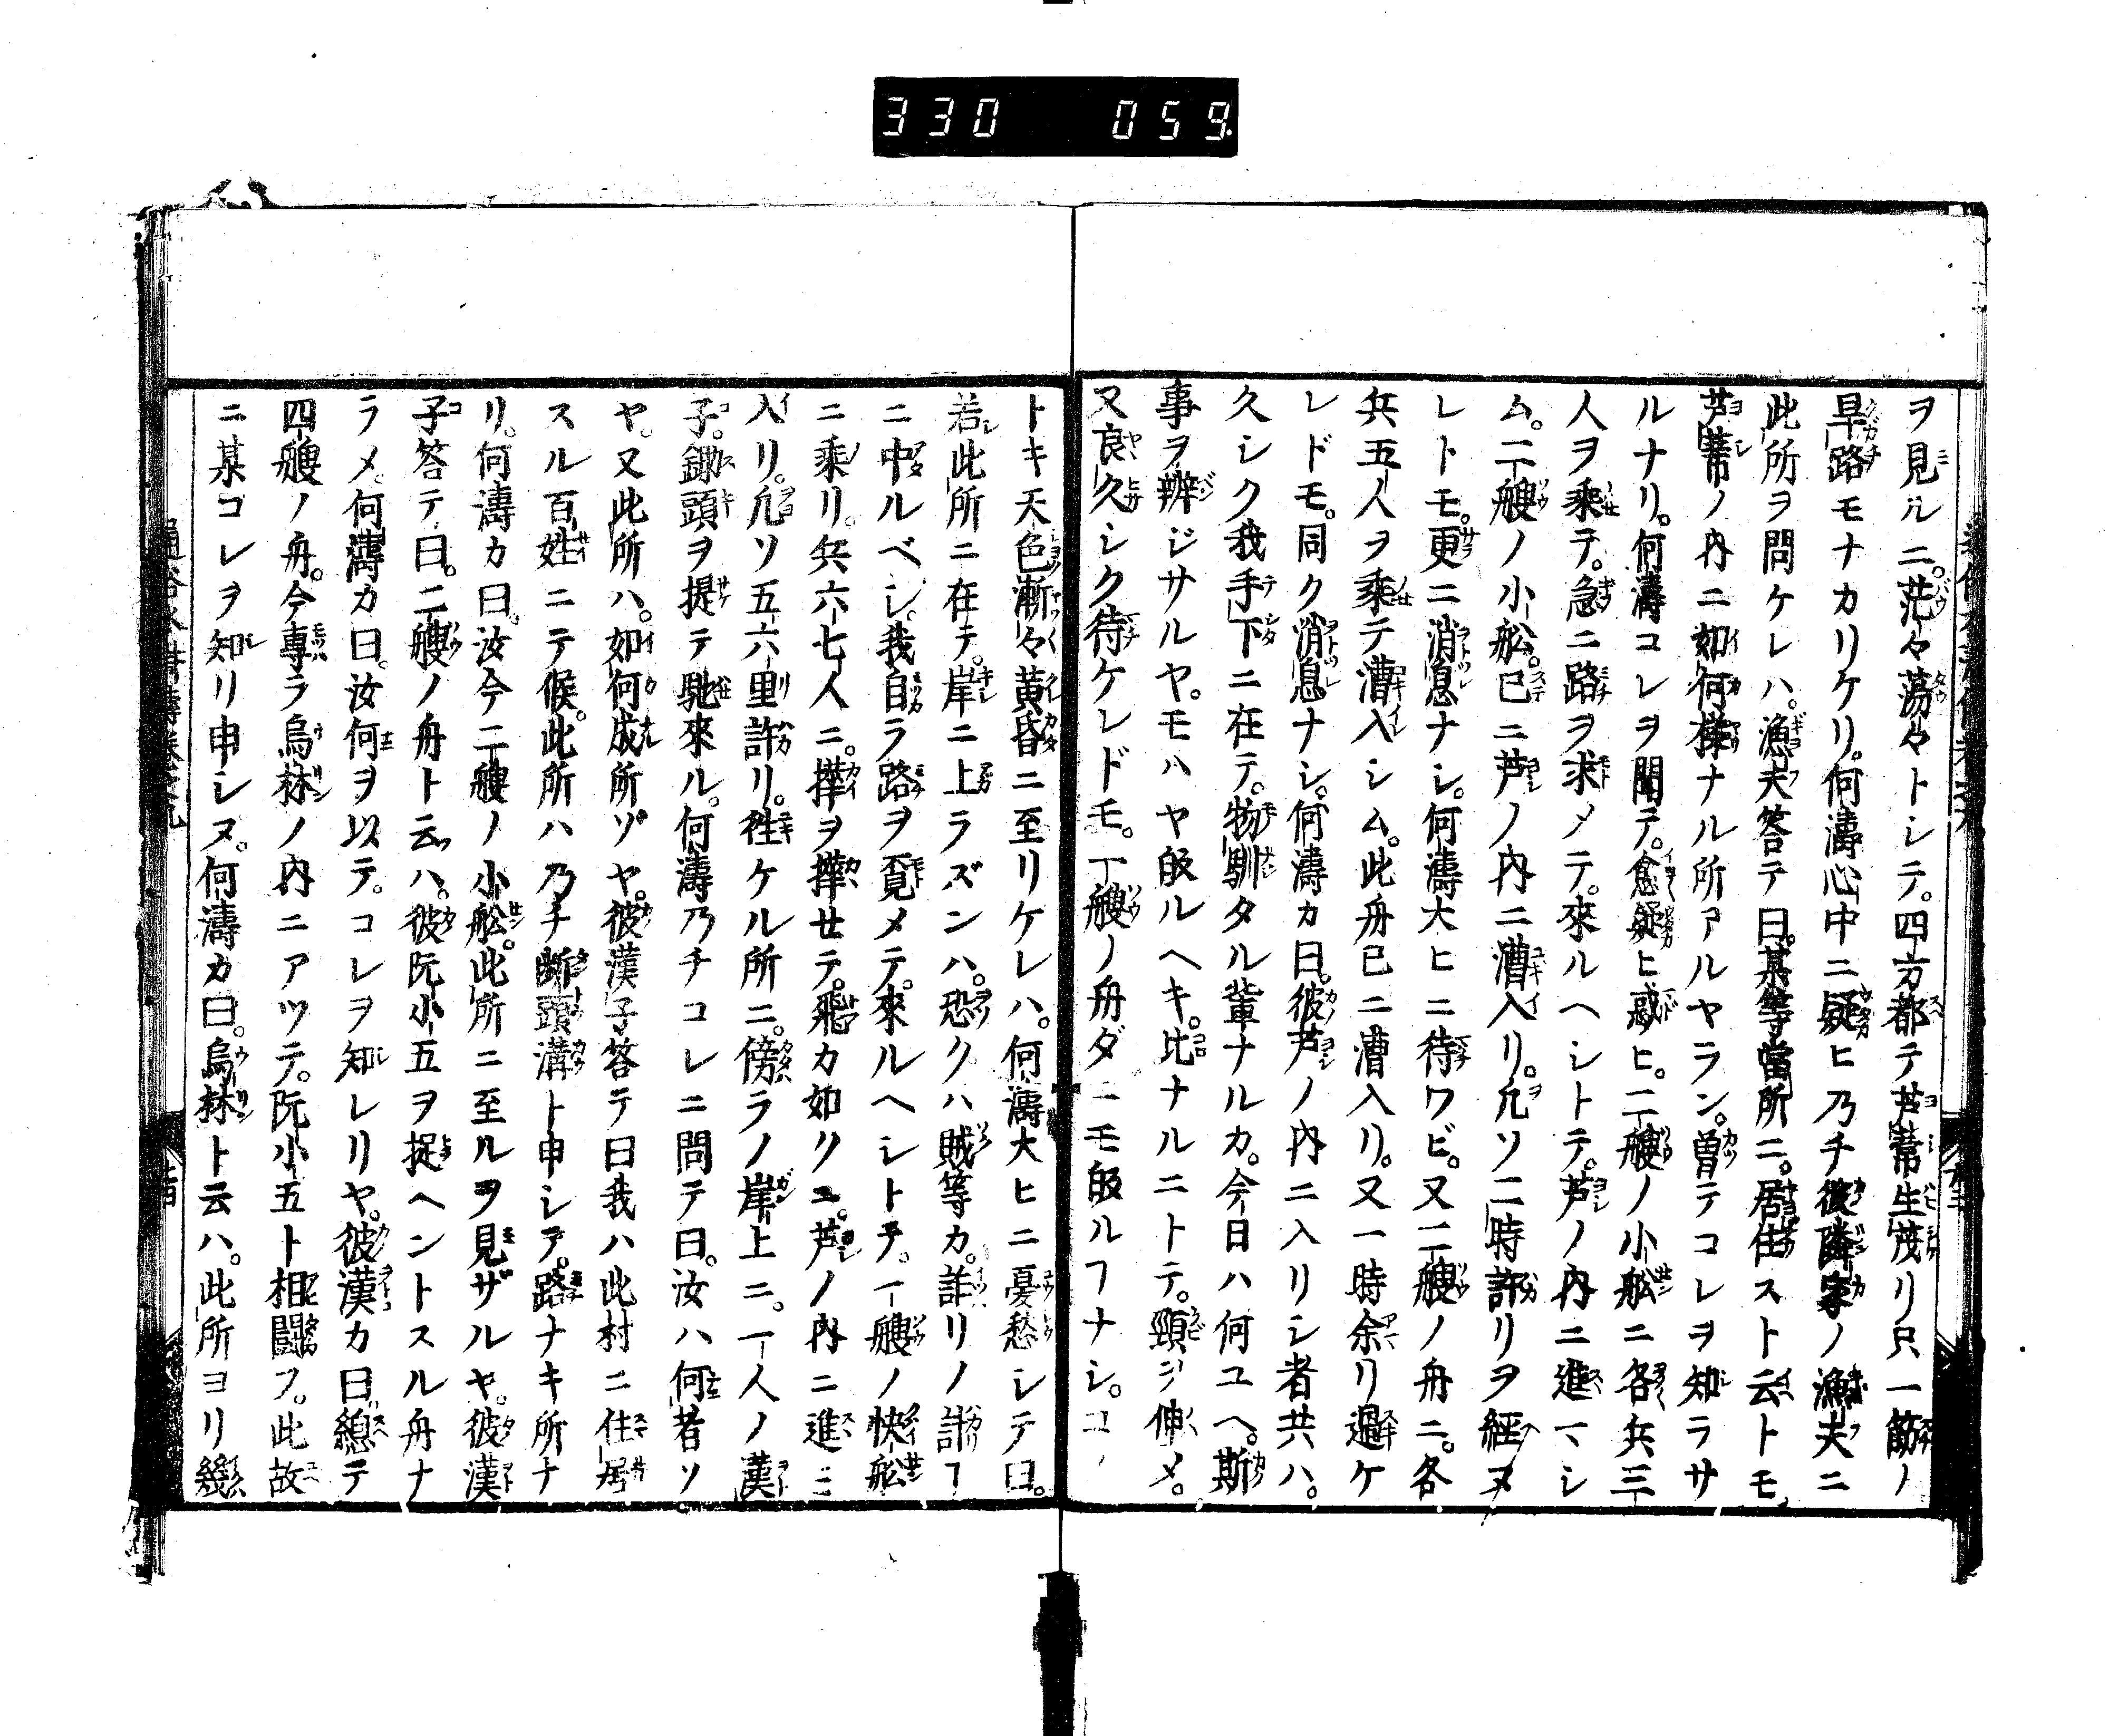 330 059
ヲ見ルニ。茫々蕩々トシテ。四方都テ芦葦生茂リ只一筋ノ
旱路モナカリケリ。何濤心中ニ疑ヒ乃チ彼隣家ノ漁夫ニ
此所ヲ問ケレハ。漁夫答テ曰。某等當所ニ。居住スト云トモ。
芦葦ノ内ニ如何様ナル所アルヤラン。曽テコレヲ知ラサ
ルナリ。何濤コレヲ聞テ。愈疑ヒ惑ヒ。二艘ノ小舩ニ各兵三
人ヲ乗テ。急ニ路ヲ求メテ。來ルヘシトテ。芦ノ内ニ進マシ
ム。二艘ノ小舩。已ニ芦ノ内ニ漕入リ。凢ソ二時許リヲ經ヌ
レトモ。更ニ消息ナシ。何濤大ヒニ待ワビ。又二艘ノ舟ニ。各
兵五人ヲ乗テ漕入シム。此舟已ニ漕入リ。又一時余リ過ケ
レドモ。同ク消息ナシ。何濤カ曰。彼芦ノ内ニ入リシ者共ハ。
久シク我手下ニ在テ。物馴タル輩ナルカ。今日ハ何ユヘ。斯
事ヲ辨ジサルヤ。モハヤ皈ルヘキ。比ナルニトテ。頸ヲ伸メ。
又良久シク待ケレドモ。一艘ノ舟ダニモ皈ルヿナシ。
トキ天色漸々黄昏ニ至リケレハ。何濤大ヒニ憂愁シテ曰。
若此所ニ在テ。岸ニ上ラズンハ。恐クハ賊等カ。詐リノ計ヿ
ニ中ルベシ。我自ラ路ヲ覓メテ。來ルヘシトテ。一艘ノ快舩
ニ乗リ。兵六七人ニ。擢ヲ擢セテ。飛カ如クニ。芦ノ内ニ進ミ
入リ。凢ソ五六里許リ。徃ケル所ニ。傍ラノ岸上ニ。一人ノ漢
子。鋤頭ヲ提テ馳來ル。何濤乃チコレニ問テ曰。汝ハ何者ソ
ヤ。又此所ハ。如何成所ゾヤ。彼漢子答テ曰我ハ此村ニ住居
スル百姓ニテ候。此所ハ乃チ断頭溝ト申シテ。路ナキ所ナ
リ。何濤カ曰。汝今二艘ノ小舩。此所ニ至ルヲ見ザルヤ。彼漢
子答テ曰。二艘ノ舟ト云ハ。彼阮小五ヲ捉ヘントスル舟ナ
ラメ。何濤カ曰。汝何ヲ以テ。コレヲ知レリヤ。彼漢カ曰。總テ
四艘ノ舟。今專ラ烏林ノ内ニアツテ。阮小五ト相闘フ。此故
ニ某コレヲ知リ申シヌ。何濤カ曰。烏林ト云ハ。此所ヨリ幾